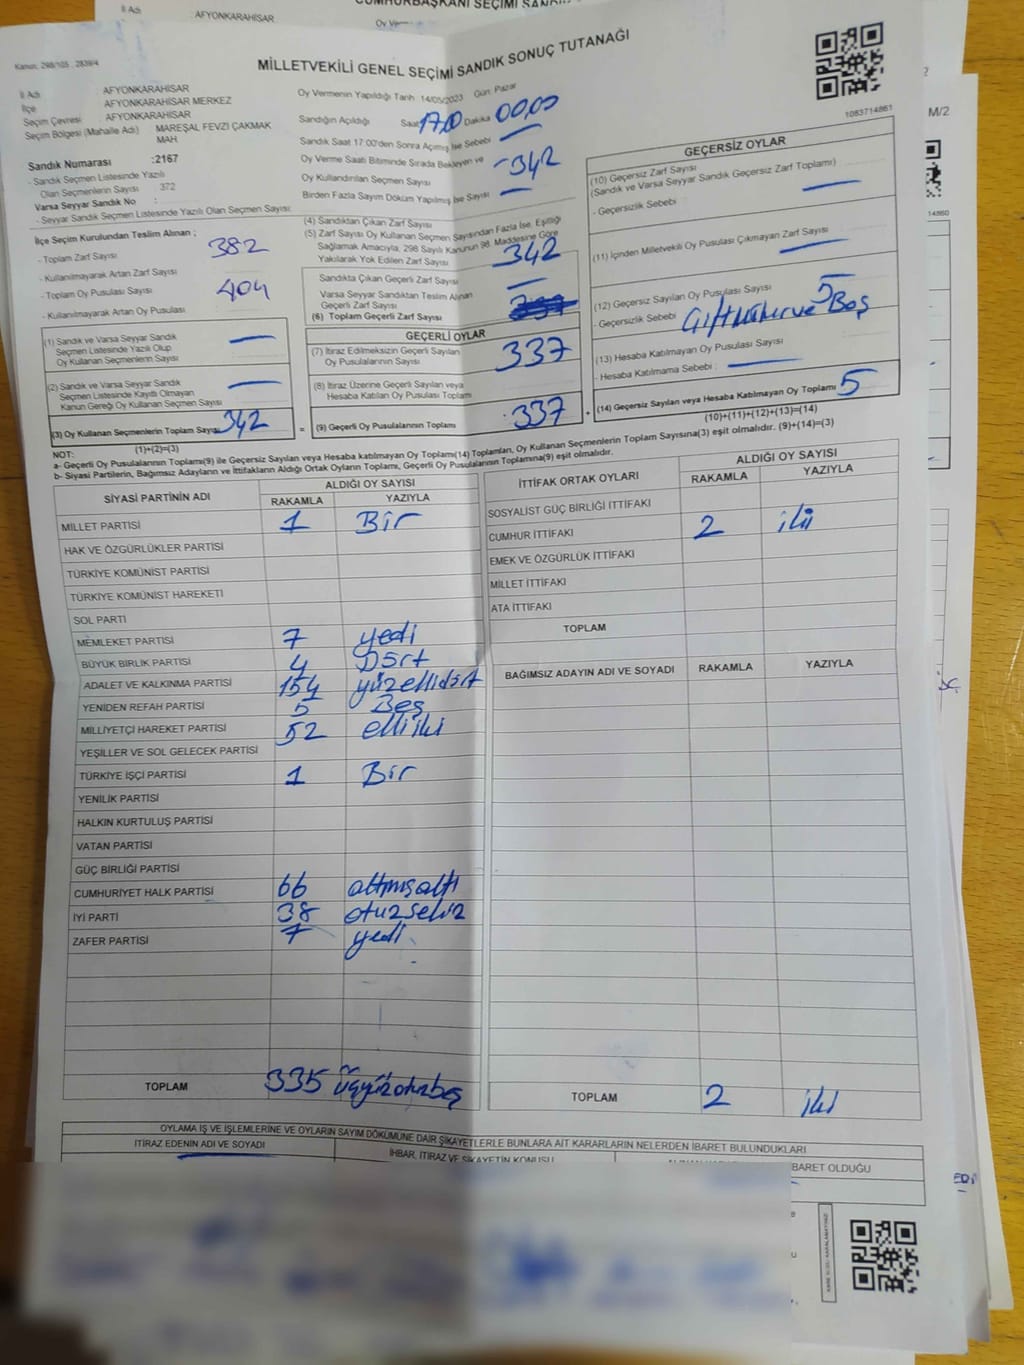 CUMHURBAŞKANI SEÇİMİ SANDIK
İl Adı : AFYONKARAHİSAR
Oy Ver
Kanun: 298/105 : 2839/4
MİLLETVEKİLİ GENEL SEÇİMİ SANDIK SONUÇ TUTANAĞI
1083714861
M/2
14860
İl Adı : AFYONKARAHİSAR
İlçe : AFYONKARAHİSAR MERKEZ
Seçim Çevresi : AFYONKARAHİSAR
Seçim Bölgesi (Mahalle Adı) : MAREŞAL FEVZİ ÇAKMAK MAH
Sandık Numarası :2167
- Sandık Seçmen Listesinde Yazılı
Olan Seçmenlerin Sayısı : 372
Varsa Seyyar Sandık No :
- Seyyar Sandık Seçmen Listesinde Yazılı Olan Seçmen Sayısı:
İlçe Seçim Kurulundan Teslim Alınan ;
- Toplam Zarf Sayısı 382
- Kullanılmayarak Artan Zarf Sayısı
- Toplam Oy Pusulası Sayısı 404
- Kullanılmayarak Artan Oy Pusulası
(1) Sandık ve Varsa Seyyar Sandık
Seçmen Listesinde Yazılı Olup
Oy Kullanan Seçmenlerin Sayısı —
(2) Sandık ve Varsa Seyyar Sandık
Seçmen Listesinde Kayıtlı Olmayan
Kanun Gereği Oy Kullanan Seçmen Sayısı —
(3) Oy Kullanan Seçmenlerin Toplam Sayısı 342
(1)+(2)=(3)
Oy Vermenin Yapıldığı Tarih 14/05/2023 Gün: Pazar
Sandığın Açıldığı Saat 17.00 Dakika 00.00
Sandık Saat 17.00'den Sonra Açılmış İse Sebebi —
Oy Verme Saati Bitiminde Sırada Bekleyen ve
Oy Kullandırılan Seçmen Sayısı 342
Birden Fazla Sayım Döküm Yapılmış İse Sayısı —
(4) Sandıktan Çıkan Zarf Sayısı
(5) Zarf Sayısı Oy Kullanan Seçmen Sayısından Fazla İse, Eşitliği
Sağlamak Amacıyla, 298 Sayılı Kanunun 98. Maddesine Göre
Yakılarak Yok Edilen Zarf Sayısı 342
Sandıkta Çıkan Geçerli Zarf Sayısı —
Varsa Seyyar Sandıktan Teslim Alınan
Geçerli Zarf Sayısı
(6) Toplam Geçerli Zarf Sayısı
GEÇERLİ OYLAR
(7) İtiraz Edilmeksizin Geçerli Sayılan
Oy Pusulalarının Sayısı 337
(8) İtiraz Üzerine Geçerli Sayılan veya
Hesaba Katılan Oy Pusulası Toplamı
(9) Geçerli Oy Pusulalarının Toplamı 337
GEÇERSİZ OYLAR
(10) Geçersiz Zarf Sayısı
(Sandık ve Varsa Seyyar Sandık Geçersiz Zarf Toplamı) —
- Geçersizlik Sebebi :
(11) İçinden Milletvekili Oy Pusulası Çıkmayan Zarf Sayısı —
(12) Geçersiz Sayılan Oy Pusulası Sayısı 5
- Geçersizlik Sebebi : Beş
(13) Hesaba Katılmayan Oy Pusulası Sayısı
- Hesaba Katılmama Sebebi : —
(14) Geçersiz Sayılan veya Hesaba Katılmayan Oy Toplamı 5
(10)+(11)+(12)+(13)=(14)
NOT:
a- Geçerli Oy Pusulalarının Toplamı(9) ile Geçersiz Sayılan veya Hesaba katılmayan Oy Toplamı(14) Toplamları, Oy Kullanan Seçmenlerin Toplam Sayısına(3) eşit olmalıdır. (9)+(14)=(3)
b- Siyasi Partilerin, Bağımsız Adayların ve İttifakların Aldığı Ortak Oyların Toplamı, Geçerli Oy Pusulalarının Toplamına(9) eşit olmalıdır.
SİYASİ PARTİNİN ADI ALDIĞI OY SAYISI
RAKAMLA YAZIYLA
MİLLET PARTİSİ 1 Bir
HAK VE ÖZGÜRLÜKLER PARTİSİ
TÜRKİYE KOMÜNİST PARTİSİ
TÜRKİYE KOMÜNİST HAREKETİ
SOL PARTİ
MEMLEKET PARTİSİ 7 yedi
BÜYÜK BİRLİK PARTİSİ 4 Dört
ADALET VE KALKINMA PARTİSİ 154 yüzellidört
YENİDEN REFAH PARTİSİ 5 Beş
MİLLİYETÇİ HAREKET PARTİSİ 52 elliiki
YEŞİLLER VE SOL GELECEK PARTİSİ
TÜRKİYE İŞÇİ PARTİSİ 1 Bir
YENİLİK PARTİSİ
HALKIN KURTULUŞ PARTİSİ
VATAN PARTİSİ
GÜÇ BİRLİĞİ PARTİSİ
CUMHURİYET HALK PARTİSİ 66 altmışaltı
İYİ PARTİ 38 otuzsekiz
ZAFER PARTİSİ 7 yedi
TOPLAM 335 üçyüzotuzbeş
İTTİFAK ORTAK OYLARI ALDIĞI OY SAYISI
RAKAMLA YAZIYLA
SOSYALİST GÜÇ BİRLİĞİ İTTİFAKI
CUMHUR İTTİFAKI 2 iki
EMEK VE ÖZGÜRLÜK İTTİFAKI
MİLLET İTTİFAKI
ATA İTTİFAKI
TOPLAM
BAĞIMSIZ ADAYIN ADI VE SOYADI RAKAMLA YAZIYLA
TOPLAM 2 iki
OYLAMA İŞ VE İŞLEMLERİNE VE OYLARIN SAYIM DÖKÜMÜNE DAİR ŞİKAYETLERLE BUNLARA AİT KARARLARIN NELERDEN İBARET BULUNDUKLARI
İTİRAZ EDENİN ADI VE SOYADI
İHBAR, İTİRAZ VE ŞİKAYETİN KONUSU
BARET OLDUĞU